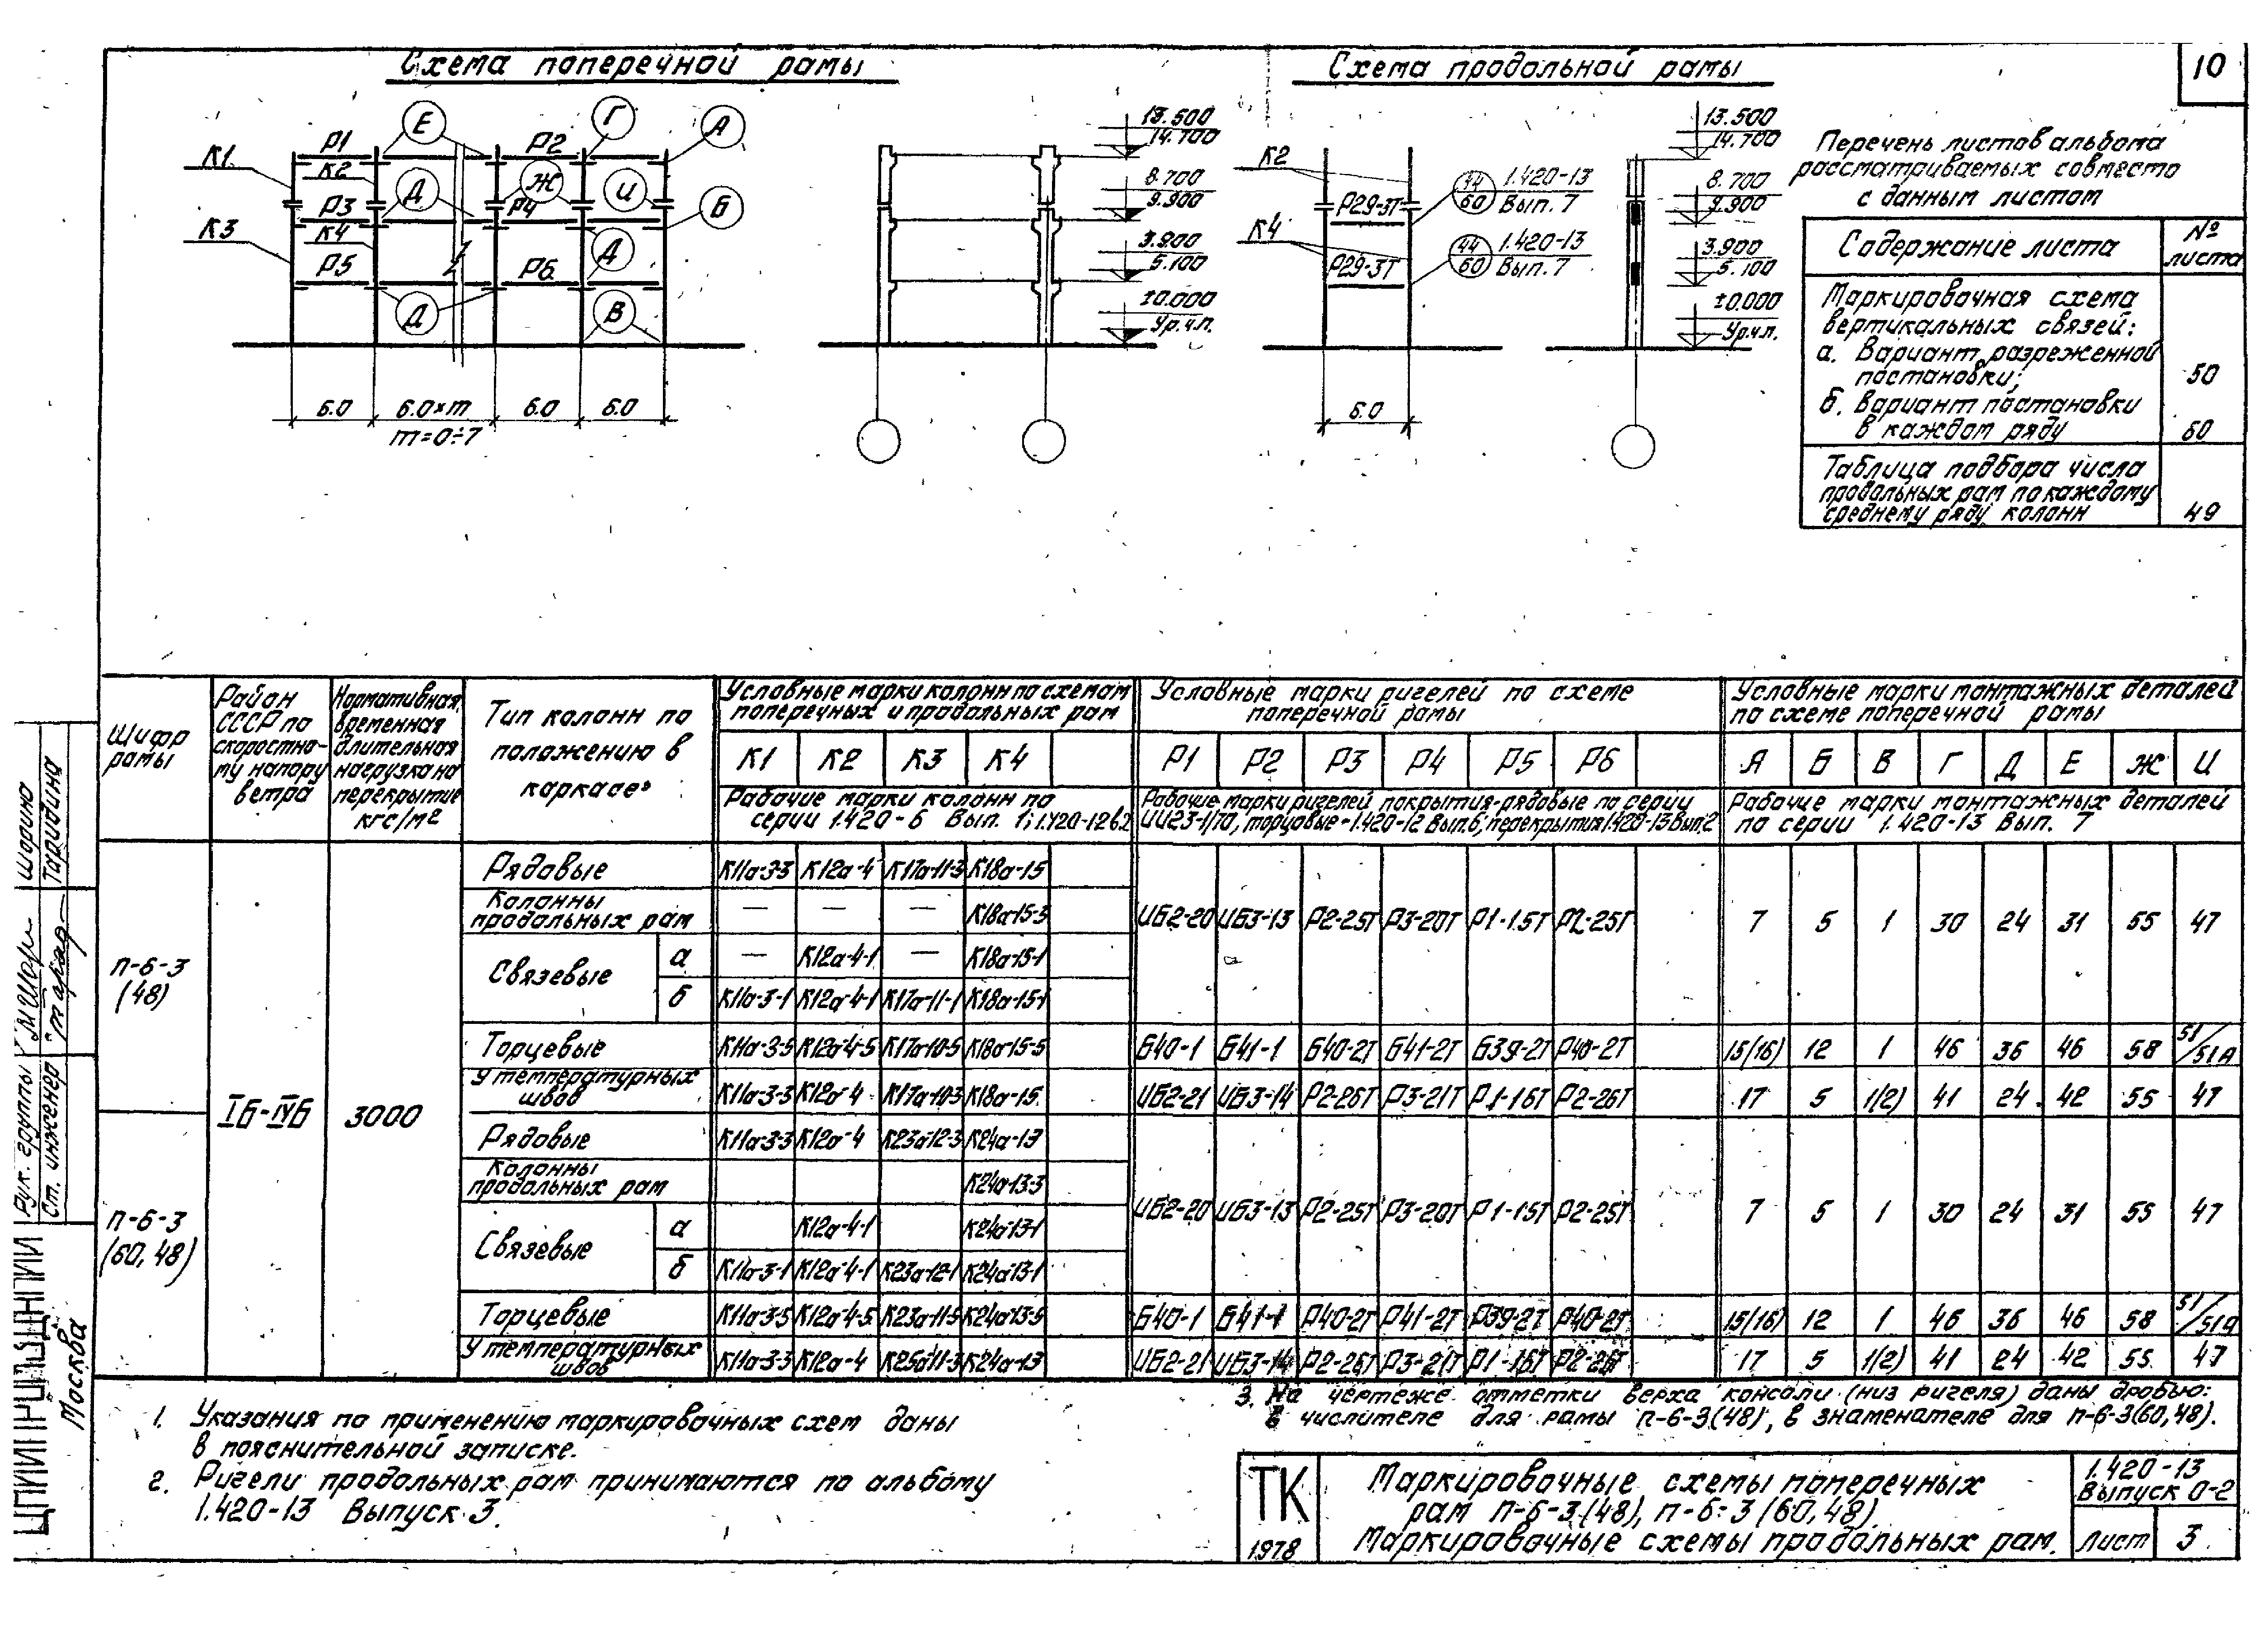 10
Схема поперечной рамы
Схема продольной рамы
К1
К3
Р1
К2
Р3
К4
Р5
Е
Д
Д
Р2
Ж
Р4
Р6
Г
И
Д
В
А
Б
6.0
6.0×m
6.0
6.0
m=0÷7
13.500
14.700
8.700
9.900
3.900
5.100
±0.000
Ур.ч.п.
К2
К4
Р29-3Т
Р29-3Т
44
60
1.420-13
Вып. 7
44
60
1.420-13
Вып. 7
6.0
13.500
14.700
8.700
9.900
3.900
5.100
±0.000
Ур.ч.п.
Перечень листов альбома
рассматриваемых совместо
с данным листом
Содержание листа
№ листа
Маркировочная схема
вертикальных связей:
а. Вариант разреженной
постановки; 50
б. Вариант постановки
в каждом ряду 60
Таблица подбора числа
продольных рам по каждому
среднему ряду колонн 49
Шифр рамы
Район СССР по скоростно-му напору ветра
Нормативная временная длительная нагрузка на перекрытие кгс/м2
Тип колонн по положению в каркасе
Условные марки колонн по схемам поперечных и продольных рам
Условные марки ригелей по схеме поперечной рамы
Условные марки монтажных деталей по схеме поперечной рамы
К1 К2 К3 К4
Р1 Р2 Р3 Р4 Р5 Р6
А Б В Г Д Е Ж И
Рабочие марки колонн по серии 1.420-6 Вып. 1; 1.420-12 в.2
Рабочие марки ригелей покрытия-рядовые по серии ИИ23-1/70, торцовые-1.420-12 вып.6; перекрытия 1.420-13 вып.2
Рабочие марки монтажных деталей по серии 1.420-13 Вып. 7
П-6-3 (48)
Iб-IVб
3000
Рядовые К11а-3-3 К12а-4 К17а-11-3 К18а-15
Колонны продольных рам — — — К18а-15-3
ИБ2-20 ИБ3-13 Р2-25Т Р3-20Т Р1-15Т Р2-25Т 7 5 1 30 24 31 55 47
Связевые
а — К12а-4-1 — К18а-15-1
б К11а-3-1 К12а-4-1 К17а-11-1 К18а-15-1
Торцевые К11а-3-5 К12а-4-5 К17а-10-5 К18а-15-5 Б40-1 Б41-1 Б40-2Т Б41-2Т Б39-2Т Р40-2Т 15(16) 12 1 46 36 46 58 51/51А
У температурных швов К11а-3-3 К12а-4 К17а-10-3 К18а-15 ИБ2-21 ИБ3-14 Р2-26Т Р3-21Т Р1-16Т Р2-26Т 17 5 1(2) 41 24 42 55 47
П-6-3 (60,48)
Рядовые К11а-3-3 К12а-4 К23а-12-3 К24а-13
Колонны продольных рам К24а-13-3
ИБ2-20 ИБ3-13 Р2-25Т Р3-20Т Р1-15Т Р2-25Т 7 5 1 30 24 31 55 47
Связевые
а К12а-4-1 К24а-13-1
б К11а-3-1 К12а-4-1 К23а-12-1 К24а-13-1
Торцевые К11а-3-5 К12а-4-5 К23а-11-5 К24а-13-5 Б40-1 Б41-1 Р40-2Т Р41-2Т Р39-2Т Р40-2Т 15(16) 12 1 46 36 46 58 51/51А
У температурных швов К11а-3-3 К12а-4 К23а-11-3 К24а-13 ИБ2-21 ИБ3-14 Р2-26Т Р3-21Т Р1-16Т Р2-26Т 17 5 1(2) 41 24 42 55 47
1. Указания по применению маркировочных схем даны
в пояснительной записке.
2. Ригели продольных рам принимаются по альбому
1.420-13 Выпуск 3.
3. На чертеже отметки верха консоли (низ ригеля) даны дробью:
в числителе для рамы П-6-3(48), в знаменателе для П-6-3(60,48).
ТК
1978
Маркировочные схемы поперечных
рам П-6-3(48), П-6-3(60,48).
Маркировочные схемы продольных рам.
1.420-13
Выпуск 0-2
Лист 3
Рук. группы Шарино
Ст. инженер
Москва